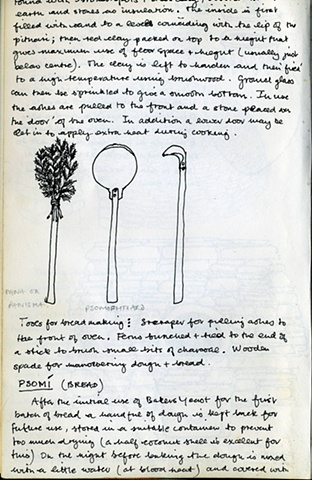 earth and stones as insulation. The inside is first
filled with sand to a level coinciding with the lip of the
pithari; then red clay packed on top to a height that
gives maximum use of floor space + height (usually just
below centre). The clay is left to harden and then 'fired'
to a high temperature using brushwood. Ground glass
can then be sprinkled to give a smooth bottom. In use
the ashes are pulled to the front and a stone placed on
the 'door' of the oven. In addition a lower door may be
let in to apply extra heat during cooking.
PANA OR
PANISMA
Tools for breadmaking: Scraper for pulling ashes to
the front of oven. Ferns bunched + tied to the end of
a stick to brush small bits of charcoal. Wooden
spade for manouvering dough + bread.
PSOMÍ (BREAD)
After the initial use of Bakers Yeast for the first
batch of bread a handful of dough is kept back for
future use, stored in a suitable container to prevent
too much drying (a half coconut shell is excellent for
this) On the night before baking the dough is mixed
with a little water (at blood heat) and covered with